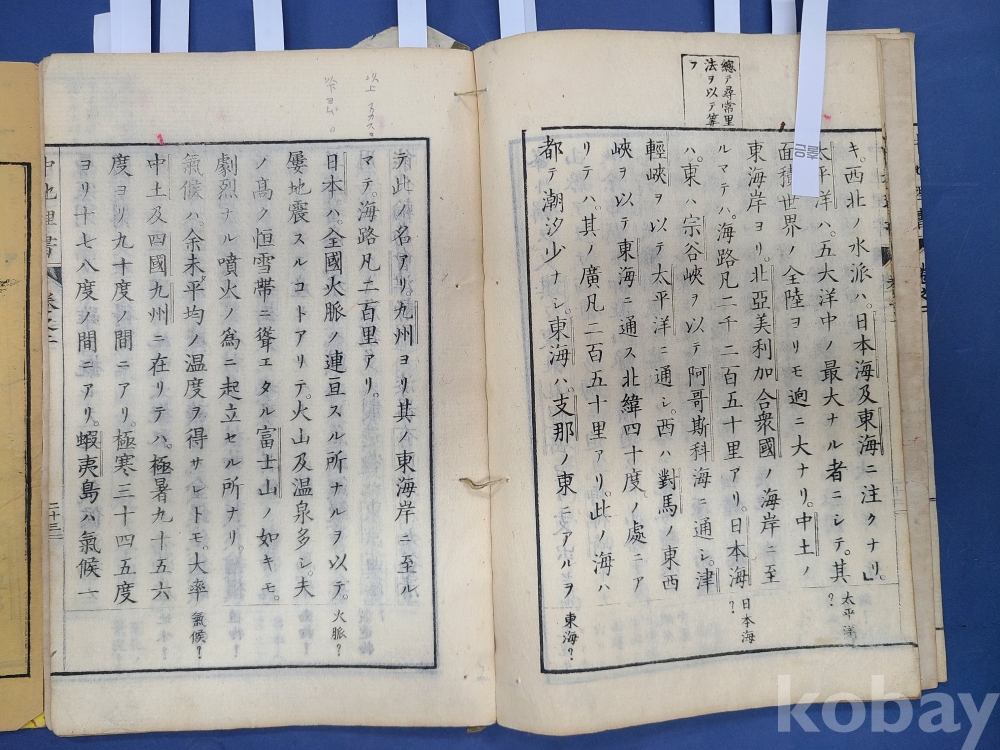 總テ尋常里
法ヲ以テ筭
フ
キ。西北ノ水派ハ。日本海及東海ニ注クナリ。」
太平洋ハ。五大洋中ノ最大ナル者ニシテ。其
太平洋?
面積世界ノ全陸ヨリモ迥ニ大ナリ。中土ノ
東海岸ヨリ。北亞美利加合衆國ノ海岸ニ至
ルマテハ。海路凡二千二百五十里アリ。日本海
日本海?
ハ。東ハ宗谷峽ヲ以テ阿哥斯科海ニ通シ。津
輕峽ヲ以テ太平洋ニ通シ。西ハ對馬ノ東西
峽ヲ以テ東海ニ通ス北緯四十度ノ處ニア
リテハ。其ノ廣凡二百五十里アリ。此ノ海ハ
都テ潮汐少ナシ。東海ハ。支那ノ東ニアルヲ
東海?
テ此ノ名アリ。九州ヨリ其ノ東海岸ニ至ル
マテ。海路凡二百里アリ。
日本ハ。全國火脈ノ連亘スル所ナルヲ以テ。
火脈?
屢地震スルコトアリテ。火山及温泉多シ。夫
ノ高ク恒雪帶ニ聳エタル富士山ノ如キモ。
劇烈ナル噴火ノ爲ニ起立セル所ナリ。
氣候ハ。余未。平均ノ温度ヲ得サレトモ。大率
氣候?
中土及四國九州ニ在リテハ。極暑九十五六
度ヨリ九十度ノ間ニアリ。極寒三十四五度
ヨリ十七八度ノ間ニアリ。蝦夷島ハ氣候一
中地理書
卷之二
kobay